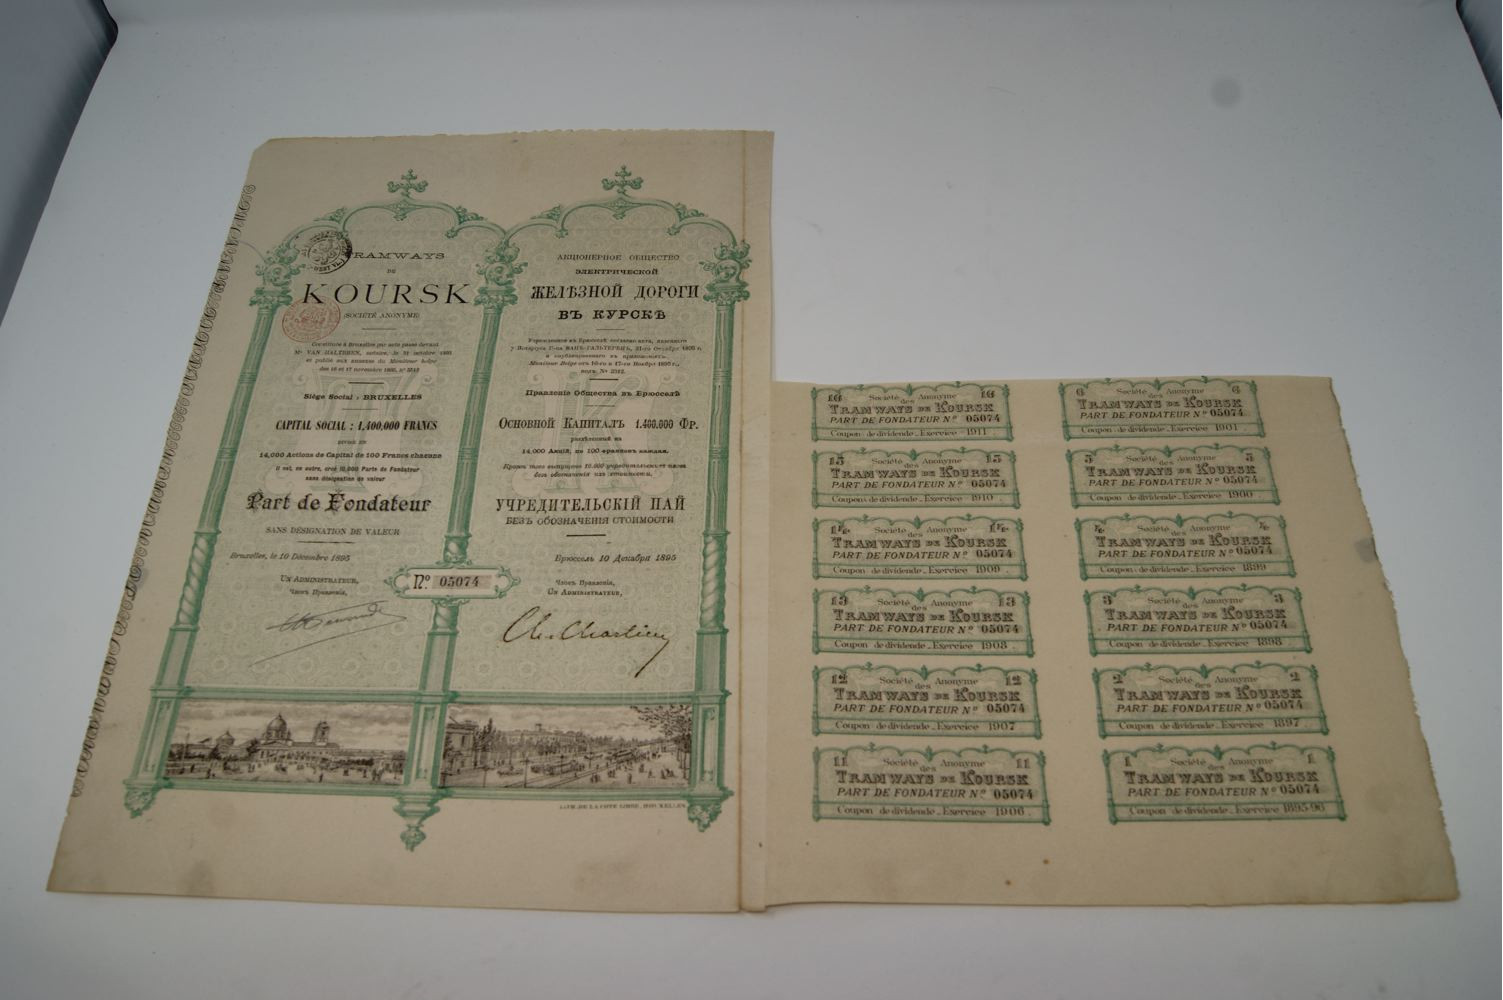 TRAMWAYS
DE
KOURSK
(SOCIÉTÉ ANONYME)
Constituée à Bruxelles par acte passé devant
Me VAN HALTEREN, notaire, le 31 octobre 1895
et publié aux annexes du Moniteur belge
des 16 et 17 novembre 1895, n°
Siège Social : BRUXELLES
CAPITAL SOCIAL : 1,400,000 FRANCS
DIVISÉ EN
14,000 Actions de Capital de 100 Francs chacune
Il est, en outre, créé 10,000 Parts de Fondateur
sans désignation de valeur
Part de Fondateur
SANS DÉSIGNATION DE VALEUR
Bruxelles, le 10 Décembre 1895
UN ADMINISTRATEUR,
Членъ Правленія,
АКЦІОНЕРНОЕ ОБЩЕСТВО
ЭЛЕКТРИЧЕСКОЙ
ЖЕЛѢЗНОЙ ДОРОГИ
ВЪ КУРСКѢ
Учрежденное въ Брюсселѣ согласно акта,
у Нотаріуса Г-на ВАНЪ-ГАЛЬТЕРЕНЪ, 31-го Октября 1895 г.
и опубликованнаго въ приложеніяхъ
Moniteur Belge отъ 16-го и 17-го Ноября 1895 г.,
подъ №
Правленіе Общества въ Брюсселѣ
ОСНОВНОЙ КАПИТАЛЪ 1.400.000 ФР.
раздѣленный на
14,000 Акцій, по 100 франковъ каждая.
Кромѣ того выпущено 10.000 учредительскихъ паевъ
безъ обозначенія ихъ стоимости.
УЧРЕДИТЕЛЬСКІЙ ПАЙ
БЕЗЪ ОБОЗНАЧЕНІЯ СТОИМОСТИ
Брюссель 10 Декабря 1895
Членъ Правленія,
UN ADMINISTRATEUR,
N° 05074
Ch. Chartier
LITH. DE LA CÔTE LIBRE, BRUXELLES
16 Société Anonyme 16
des
TRAMWAYS DE KOURSK
PART DE FONDATEUR N° 05074
Coupon de dividende - Exercice 1911
6 Société Anonyme 6
des
TRAMWAYS DE KOURSK
PART DE FONDATEUR N° 05074
Coupon de dividende - Exercice 1901
15 Société Anonyme 15
des
TRAMWAYS DE KOURSK
PART DE FONDATEUR N° 05074
Coupon de dividende - Exercice 1910
5 Société Anonyme 5
des
TRAMWAYS DE KOURSK
PART DE FONDATEUR N° 05074
Coupon de dividende - Exercice 1900
14 Société Anonyme 14
des
TRAMWAYS DE KOURSK
PART DE FONDATEUR N° 05074
Coupon de dividende - Exercice 1909
4 Société Anonyme 4
des
TRAMWAYS DE KOURSK
PART DE FONDATEUR N° 05074
Coupon de dividende - Exercice 1899
13 Société Anonyme 13
des
TRAMWAYS DE KOURSK
PART DE FONDATEUR N° 05074
Coupon de dividende - Exercice 1908
3 Société Anonyme 3
des
TRAMWAYS DE KOURSK
PART DE FONDATEUR N° 05074
Coupon de dividende - Exercice 1898
12 Société Anonyme 12
des
TRAMWAYS DE KOURSK
PART DE FONDATEUR N° 05074
Coupon de dividende - Exercice 1907
2 Société Anonyme 2
des
TRAMWAYS DE KOURSK
PART DE FONDATEUR N° 05074
Coupon de dividende - Exercice 1897
11 Société Anonyme 11
des
TRAMWAYS DE KOURSK
PART DE FONDATEUR N° 05074
Coupon de dividende - Exercice 1906
1 Société Anonyme 1
des
TRAMWAYS DE KOURSK
PART DE FONDATEUR N° 05074
Coupon de dividende - Exercice 1895-96